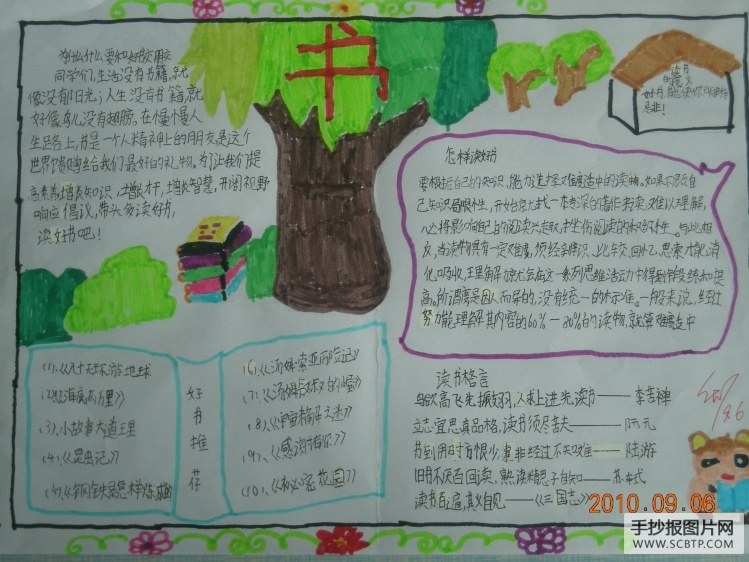 书
为什么要和好书交朋友
同学们,生活没有书籍,就
像没有阳光;人生没有书籍,就
好像鸟儿没有翅膀,在慢慢人
生路上,书是一个人精神上的朋友,是这个
世界馈赠给我们最好的礼物。为了让我们提
高素养,增长知识,增长才干,增长智慧,开阔视野
响应倡议,带头多读好书,
读好书吧!
读书
的意义
好书,能使你明辨
是非!
怎样读好书
要根据自己的知识、能力选择又难度适中的读物。如果不顾自
己知识局限性,开始就去找一本奇深的著作来读,又难以理解,
八必将影响自己的阅读兴趣,挫伤阅读的积极性。与此相
反,当读物具有一定难度,须经辨识、比较、回忆、思索才能消
化吸收,理解时,就会在这一系列思维活动中得到锻炼和提
高。所谓度是因人而异的,没有统一的标准。一般来说,经过
努力能理解其内容的60%—80%的读物,就算难度适中
好书推荐
(1).《八十天环游地球
(2)《海底两万里》
(3)、小故事大道理
(4)、《昆虫记》
(5)、《钢铁是怎样炼成的
(6)、《汤姆索亚历险记》
(7)、《汤姆叔叔的小屋》
(8)、《宇宙未解之迷》
(9)、《感谢折磨》
(10)、《秘密花园》
读书格言
鸟欲高飞先振翅,人求上进先读书——李苦禅
立志宜思真品格,读书须尽苦夫——阮元
书到用时方恨少,事非经过不知难——陆游
旧书不厌百回读,熟读精思子自知——苏轼
读书百遍,其义自见——《三国志》
9.6
2010.09.06
手抄报图片网
www.SCBTP.com